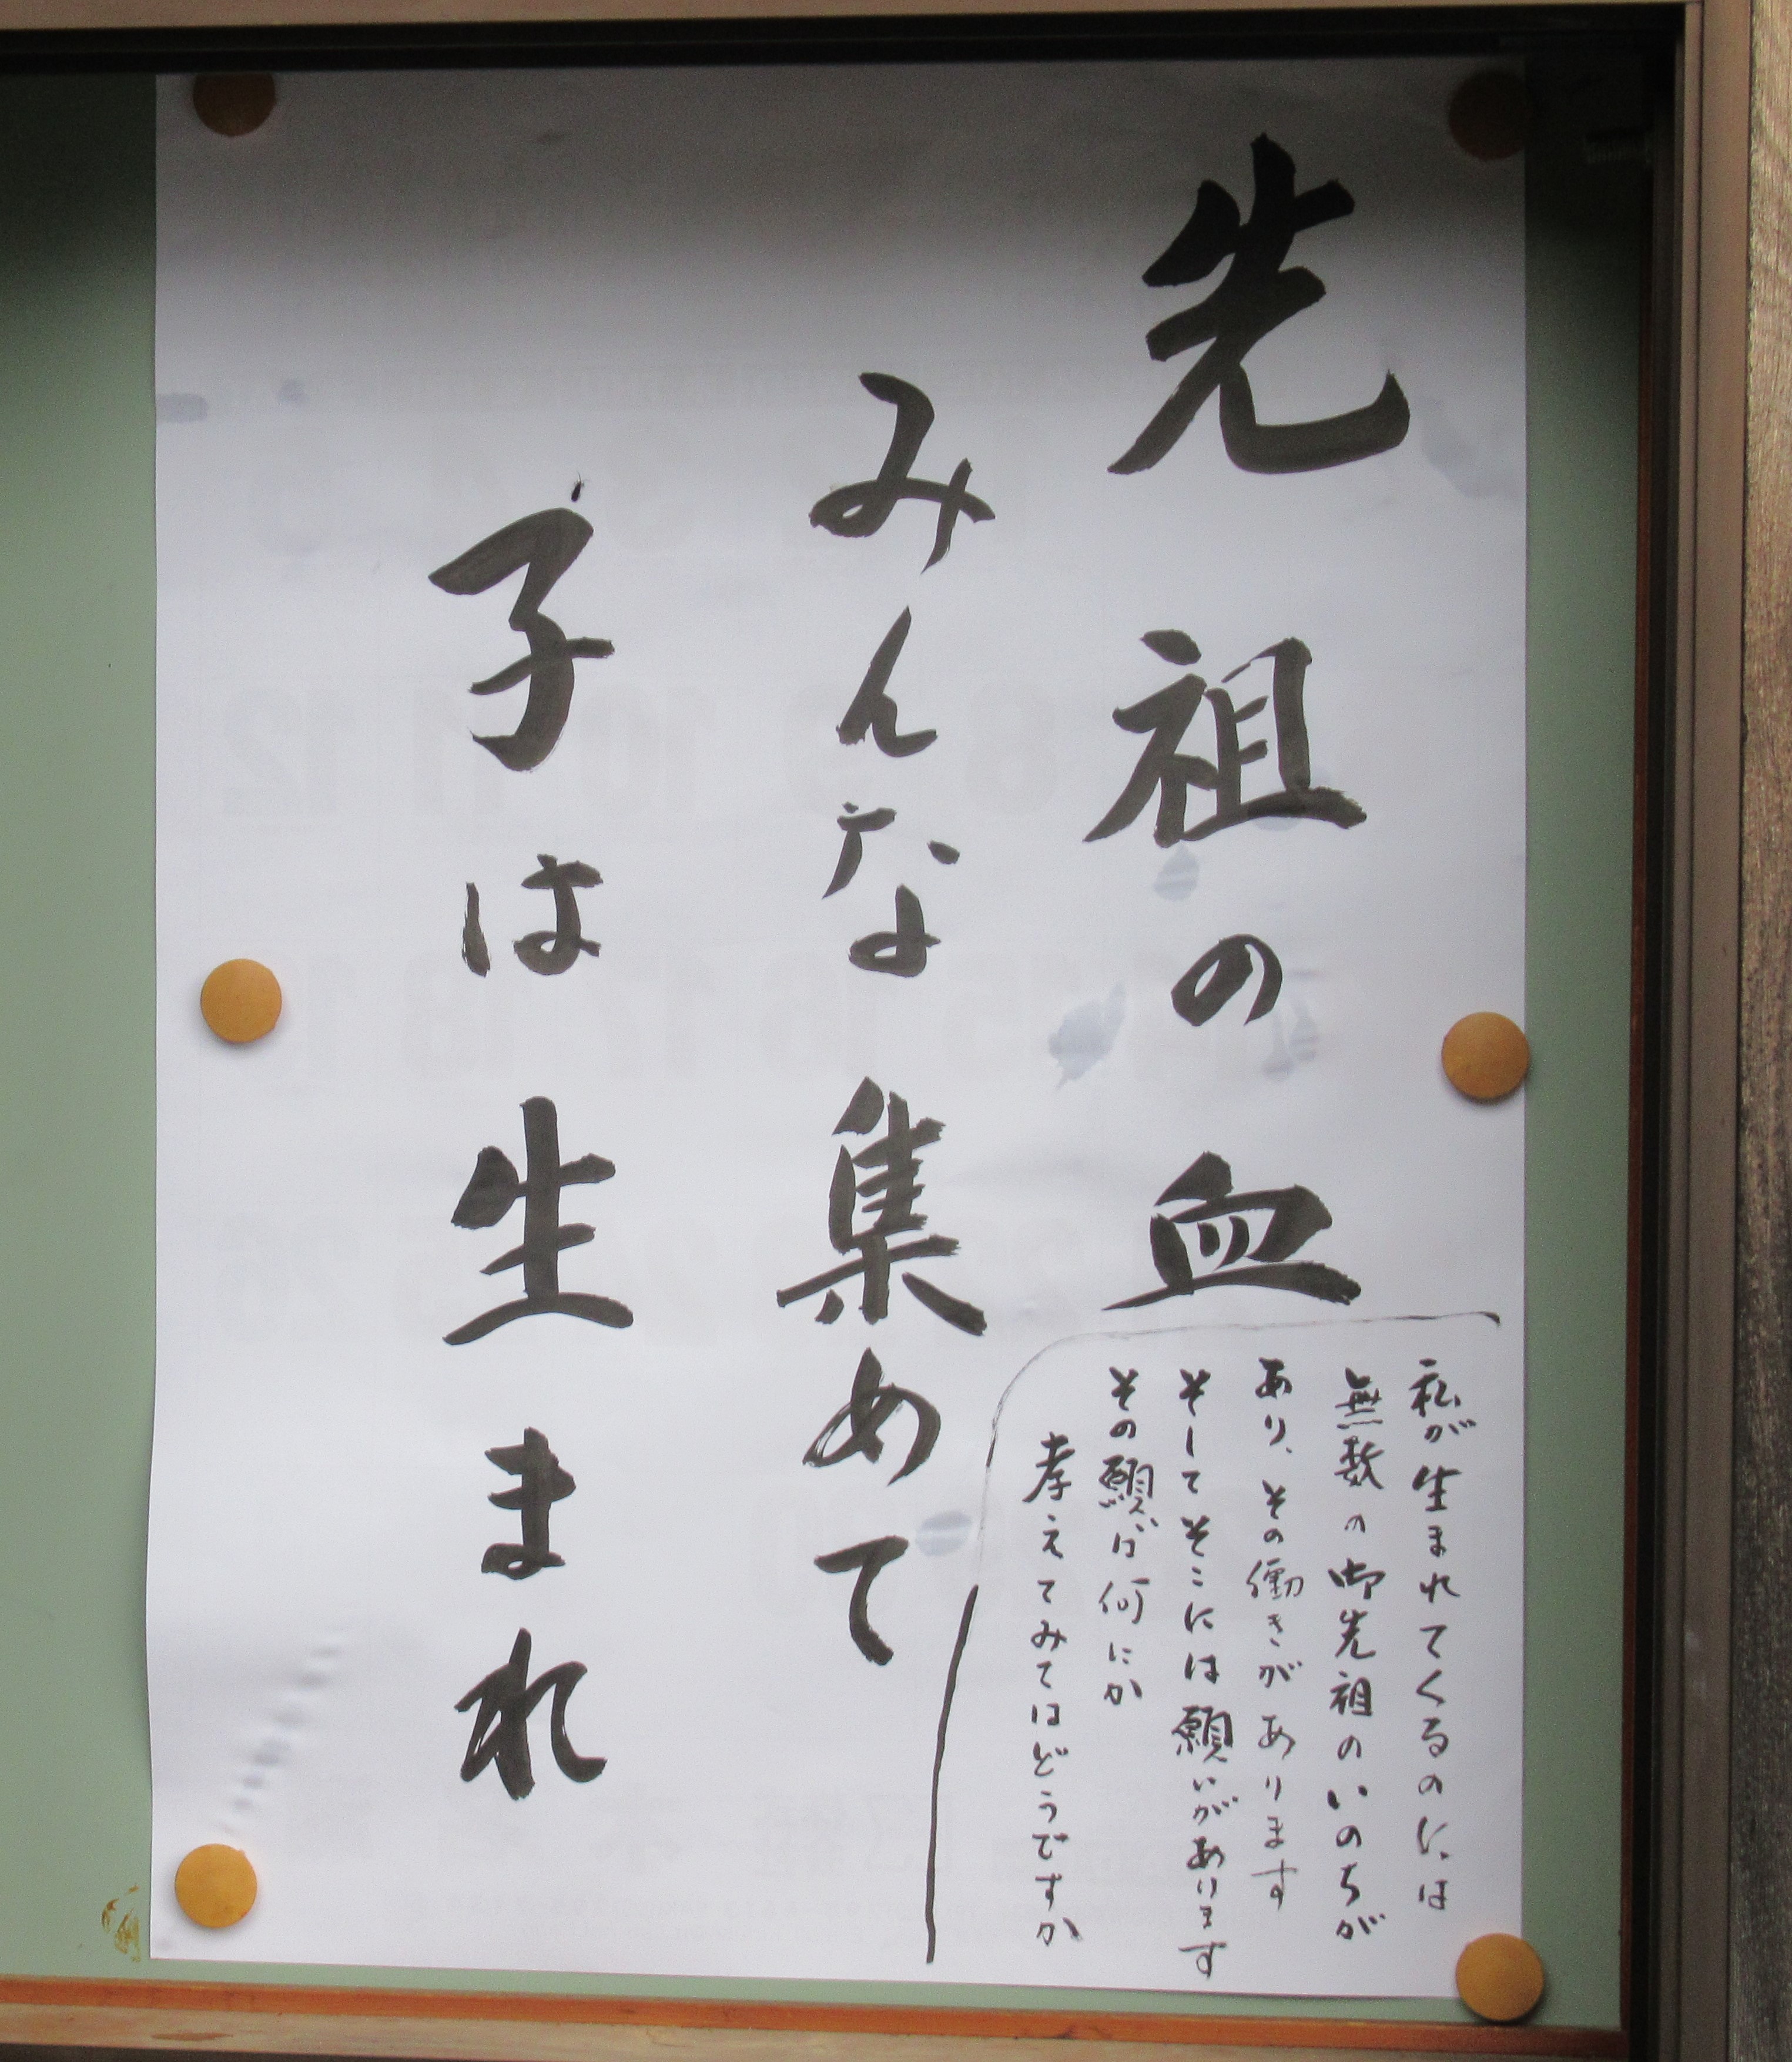 先祖の血
みんな集めて
子は生まれ
私が生まれてくるのには
無数の御先祖のいのちが
あり、その働きがあります
そしてそこには願いがあります
その願いは何にか
考えてみてはどうですか